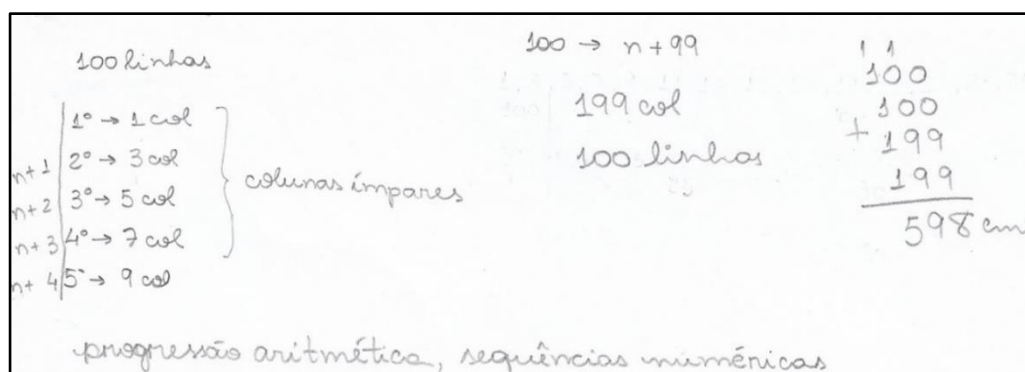 100 linhas
1º → 1 col
n+1 2º → 3 col
n+2 3º → 5 col
n+3 4º → 7 col
n+4 5º → 9 col
colunas ímpares
100 → n+99
199 col
100 linhas
1 1
100
100
+ 199
199
598 cm
progressão aritmética, sequências numéricas